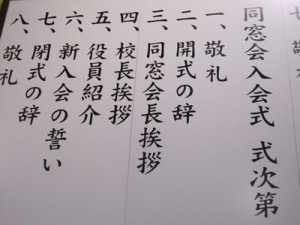 同窓会入会式 式次第
一、敬礼
二、開式の辞
三、同窓会長挨拶
四、校長挨拶
五、役員紹介
六、新入会の誓い
七、閉式の辞
八、敬礼